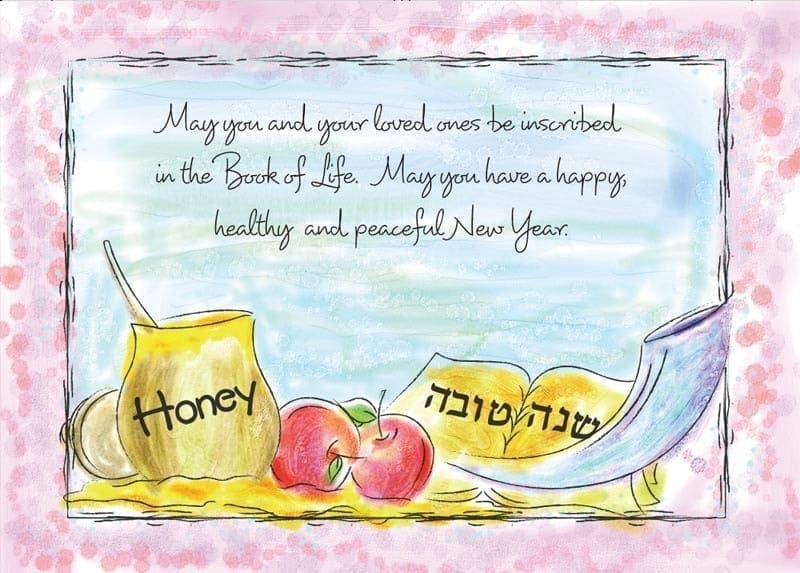 May you and your loved ones be inscribed
in the Book of Life. May you have a happy,
healthy and peaceful New Year.
Honey
שנה טובה